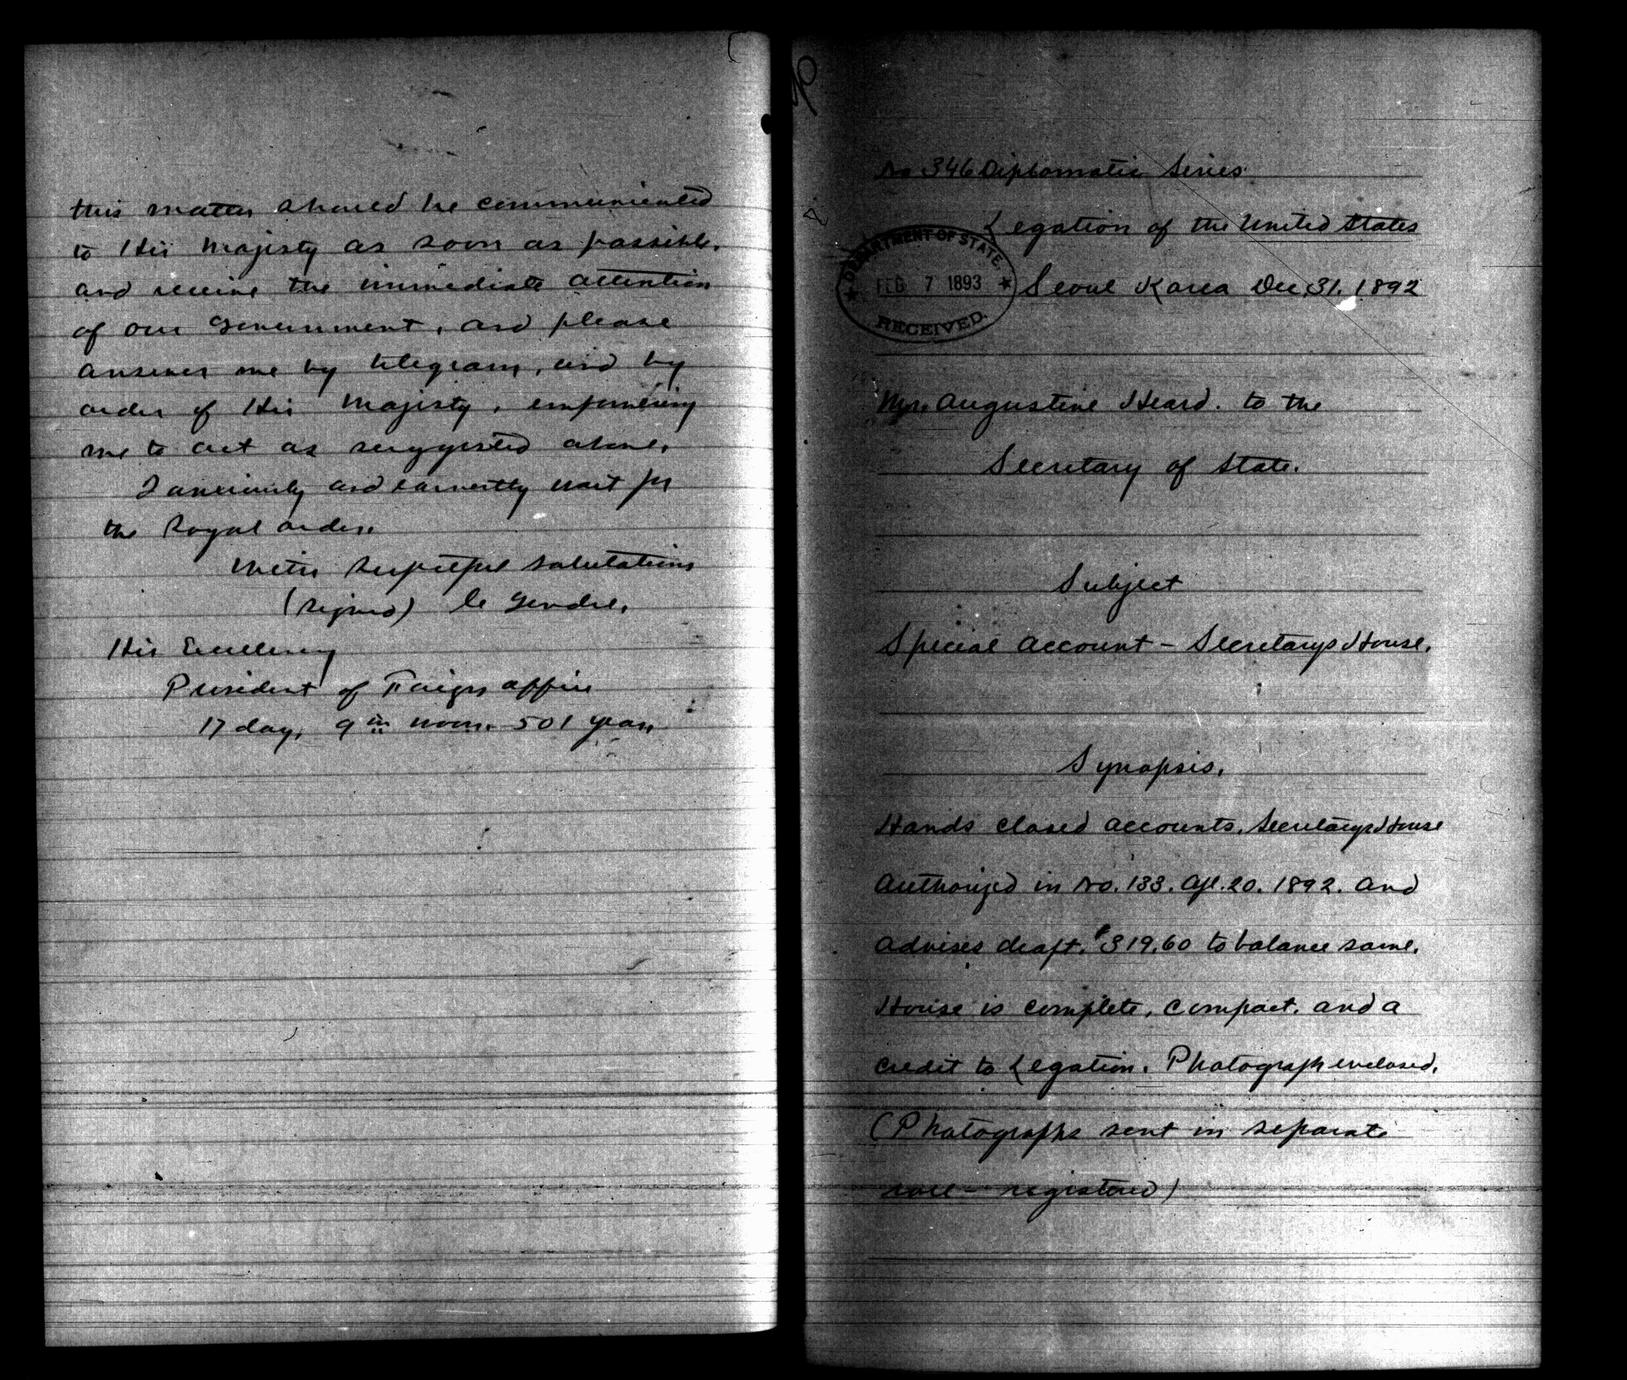 this matter should be communicated
to His Majesty as soon as possible,
and receive the immediate attention
of our Government, and please
answer me by telegram, and by
order of His Majesty, empowering
me to act as suggested above.
I anxiously and earnestly wait for
the Royal order.
With respectful salutations
(signed) Le Gendre.
His Excellency
President of Foreign office
17 day, 9th moon. 501 year,
No 346 Diplomatic Series
Legation of the United States
DEPARTMENT OF STATE.
FEB 7 1893
RECEIVED.
Seoul Korea Dec, 31, 1892
Mr. Augustine Heard. to the
Secretary of State.
Subject
Special Account - Secretarys House.
Synopsis.
Hands closed accounts, Secretarys House
Authorized in No. 133. Apl. 20. 1892. and
advises draft, $319.60 to balance same.
House is complete, compact, and a
credit to Legation. Photograph enclosed.
(Photographs sent in separate
registered)